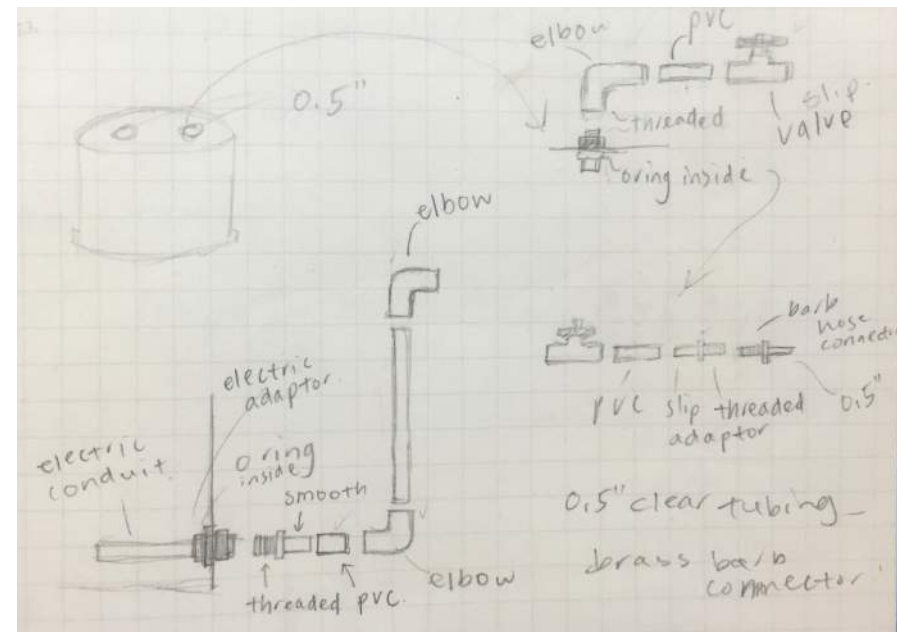 0.5"
elbow
pvc
slip
valve
threaded
oring inside
elbow
barb
hose
connector
0.5"
pvc
slip threaded
adaptor
electric
adaptor.
electric
conduit.
o ring
inside
smooth
threaded pvc.
elbow
0.5" clear tubing
brass barb
connector